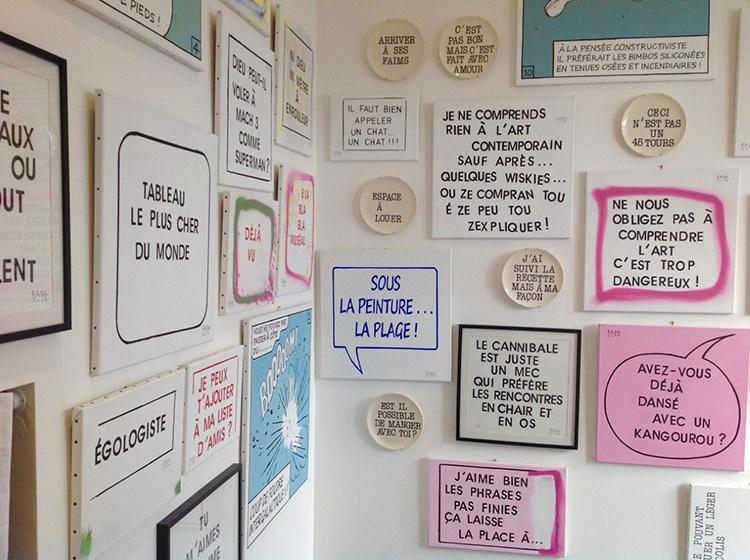 E PIEDS !
E
AUX
OU
OUT
LENT
TABLEAU
LE PLUS CHER
DU MONDE
DIEU PEUT-IL
VOLER À
MACH 3
COMME
SUPERMAN?
NI DIEU
NI MÈTRE
À
ENROULEUR
DÉJÀ
VU
BLA
BLA
BLA
MUSÉAL
ÉGOLOGISTE
JE PEUX
T'AJOUTER
À MA LISTE
D'AMIS ?
VOUS NE POUVEZ PAS
PASSER À CÔTÉ
DU...
BOOOOM!
COUP DE FOUDRE
INTERGALACTIQUE !
TU
M'AIMES
ARRIVER
À SES
FAIMS
C'EST
PAS BON
MAIS C'EST
FAIT AVEC
AMOUR
10
À LA PENSÉE CONSTRUCTIVISTE
IL PRÉFÉRAIT LES BIMBOS SILICONÉES
EN TENUES OSÉES ET INCENDIAIRES !
IL FAUT BIEN
APPELER
UN CHAT...
UN CHAT !!!
JE NE COMPRENDS
RIEN À L'ART
CONTEMPORAIN
SAUF APRÈS...
QUELQUES WISKIES...
OU ZE COMPRAN TOU
É ZE PEU TOU
ZEXPLIQUER !
CECI
N'EST PAS
UN
45 TOURS
ESPACE
À
LOUER
NE NOUS
OBLIGEZ PAS À
COMPRENDRE
L'ART
C'EST TROP
DANGEREUX !
J'AI
SUIVI LA
RECETTE
MAIS À MA
FAÇON
SOUS
LA PEINTURE...
LA PLAGE !
LE CANNIBALE
EST JUSTE
UN MEC
QUI PRÉFÈRE
LES RENCONTRES
EN CHAIR ET
EN OS
AVEZ-VOUS
DÉJÀ
DANSÉ
AVEC UN
KANGOUROU ?
EST IL
POSSIBLE
DE MANGER
AVEC TOI ?
J'AIME BIEN
LES PHRASES
PAS FINIES
ÇA LAISSE
LA PLACE À...
POUVANT
UN LÉGER
COLIS